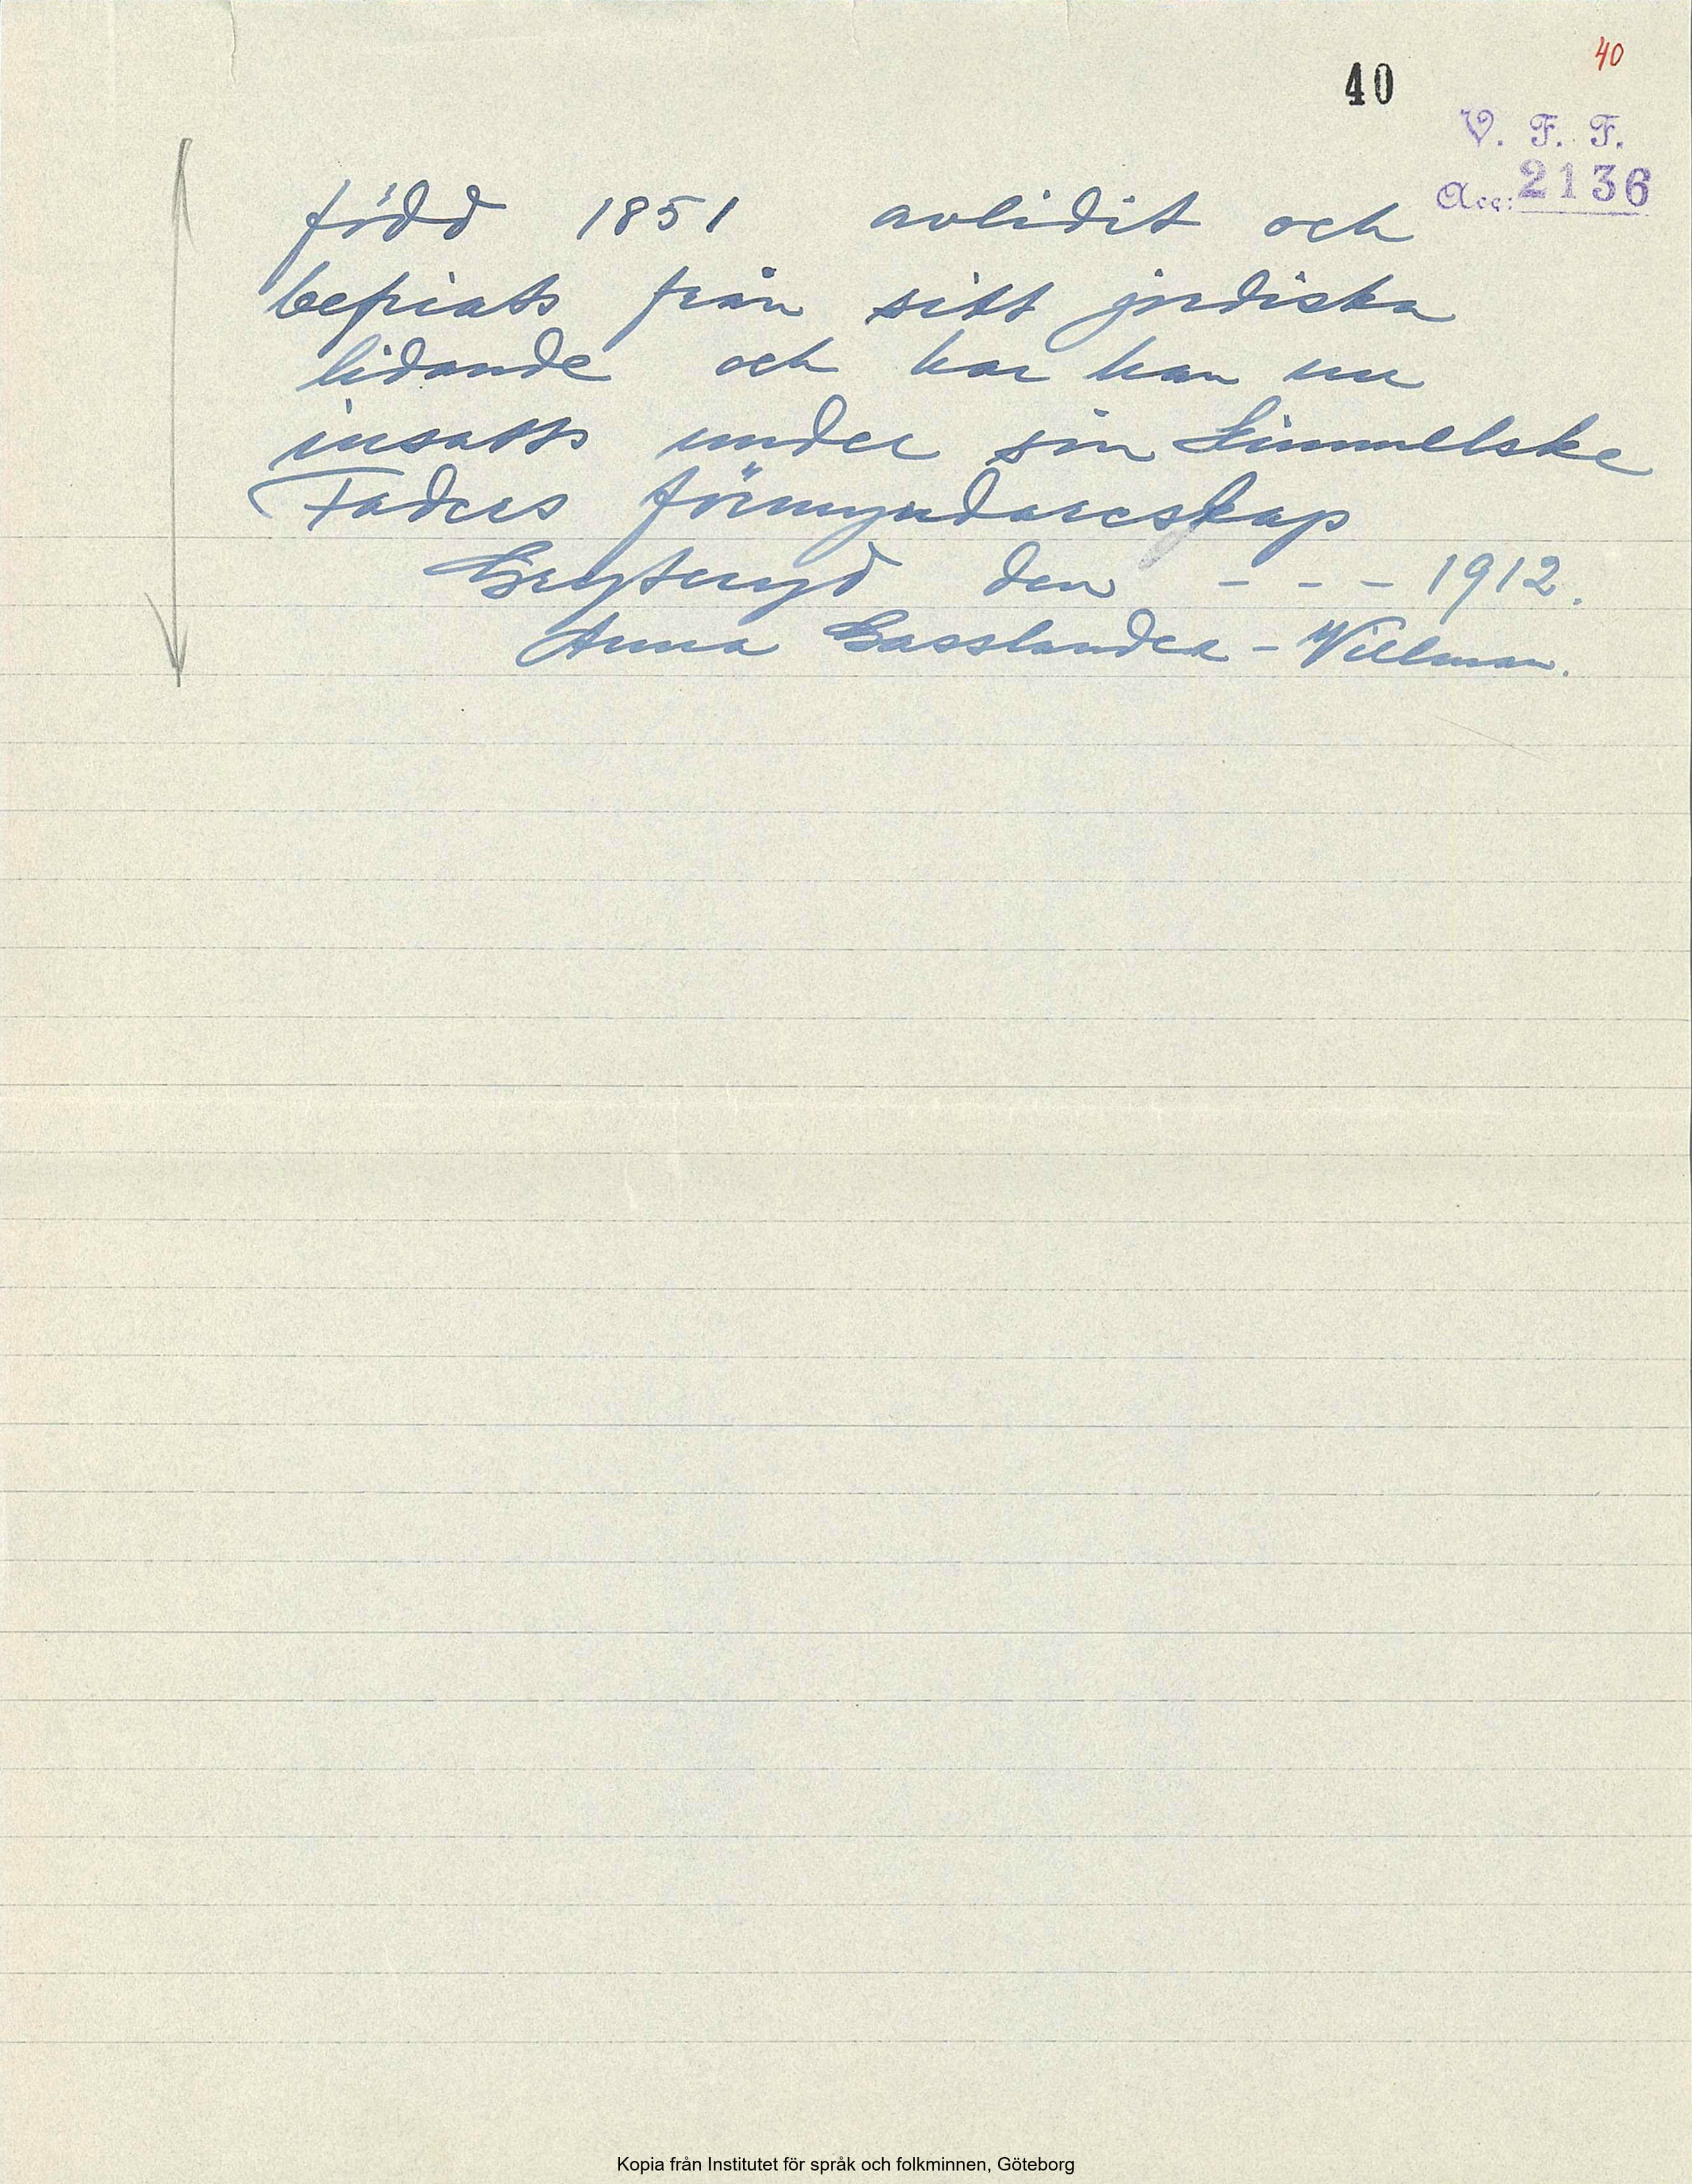 40
40
V. F. F.
Acc: 2136
född 1851 avlidit och
befriats från sitt jordiska
lidande och har han nu
insatts under sin Himmelske
Faders förmyndareskap
Gryteryd den - - - 1912.
Anna Gasslander - Willman.
Kopia från Institutet för språk och folkminnen, Göteborg